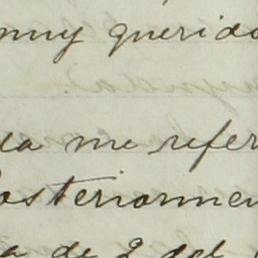 muy querido
da me refer
Posteriormen
a de 2 del